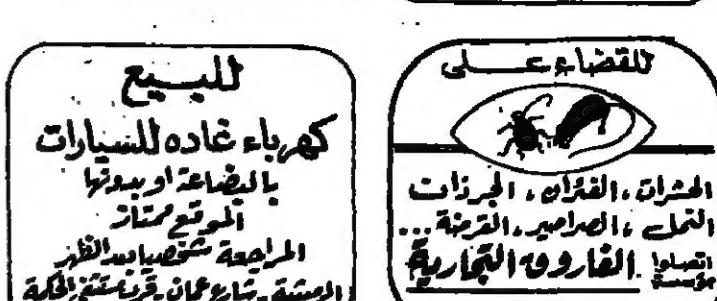 للقضاء على
الحشرات، الفئران، الجرذان
النمل، الصراصير، القرضة...
اتصلوا بمؤسسة الفاروق التجارية
للبيع
كهرباء غاده للسيارات
بالبضاعة او بدونها
الموقع ممتاز
المراجعة شخصيا بعد الظهر
شارع عمان، قرب مستشفى الحكمة